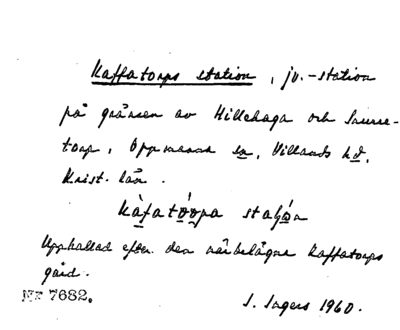 Kaffatorps station, jv.-station
på gränsen av Hillehaga och Snurre-
torp, Oppmanna sn, Villands hd,
Krist. län.
kàfatò̤o̤pa staʃó̤n
Upphallad efter den närbelägna Kaffatorps
gård.
Nr 7682.
S. Ingers 1960.